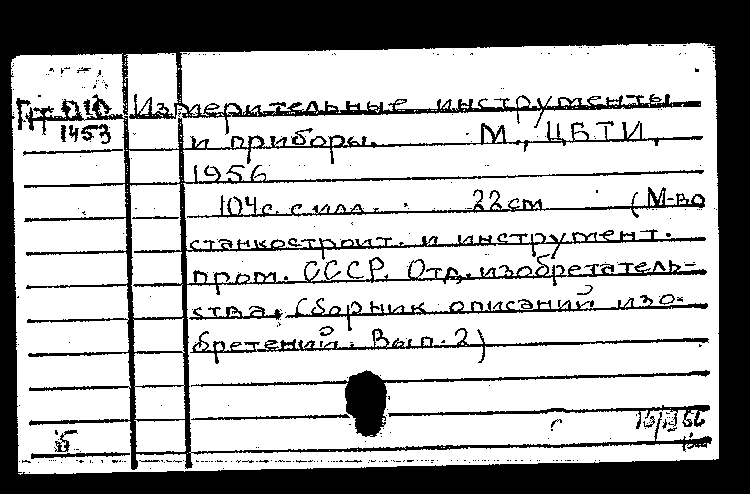 Измерительные инструменты
1453
и приборы. М., ЦБТИ,
1956
104 с. с илл. 22 см (М-во
станкостроит. и инструмент.
пром. СССР. Отд. изобретатель-
ства. Сборник описаний изо-
бретений. Вып. 2)
Б